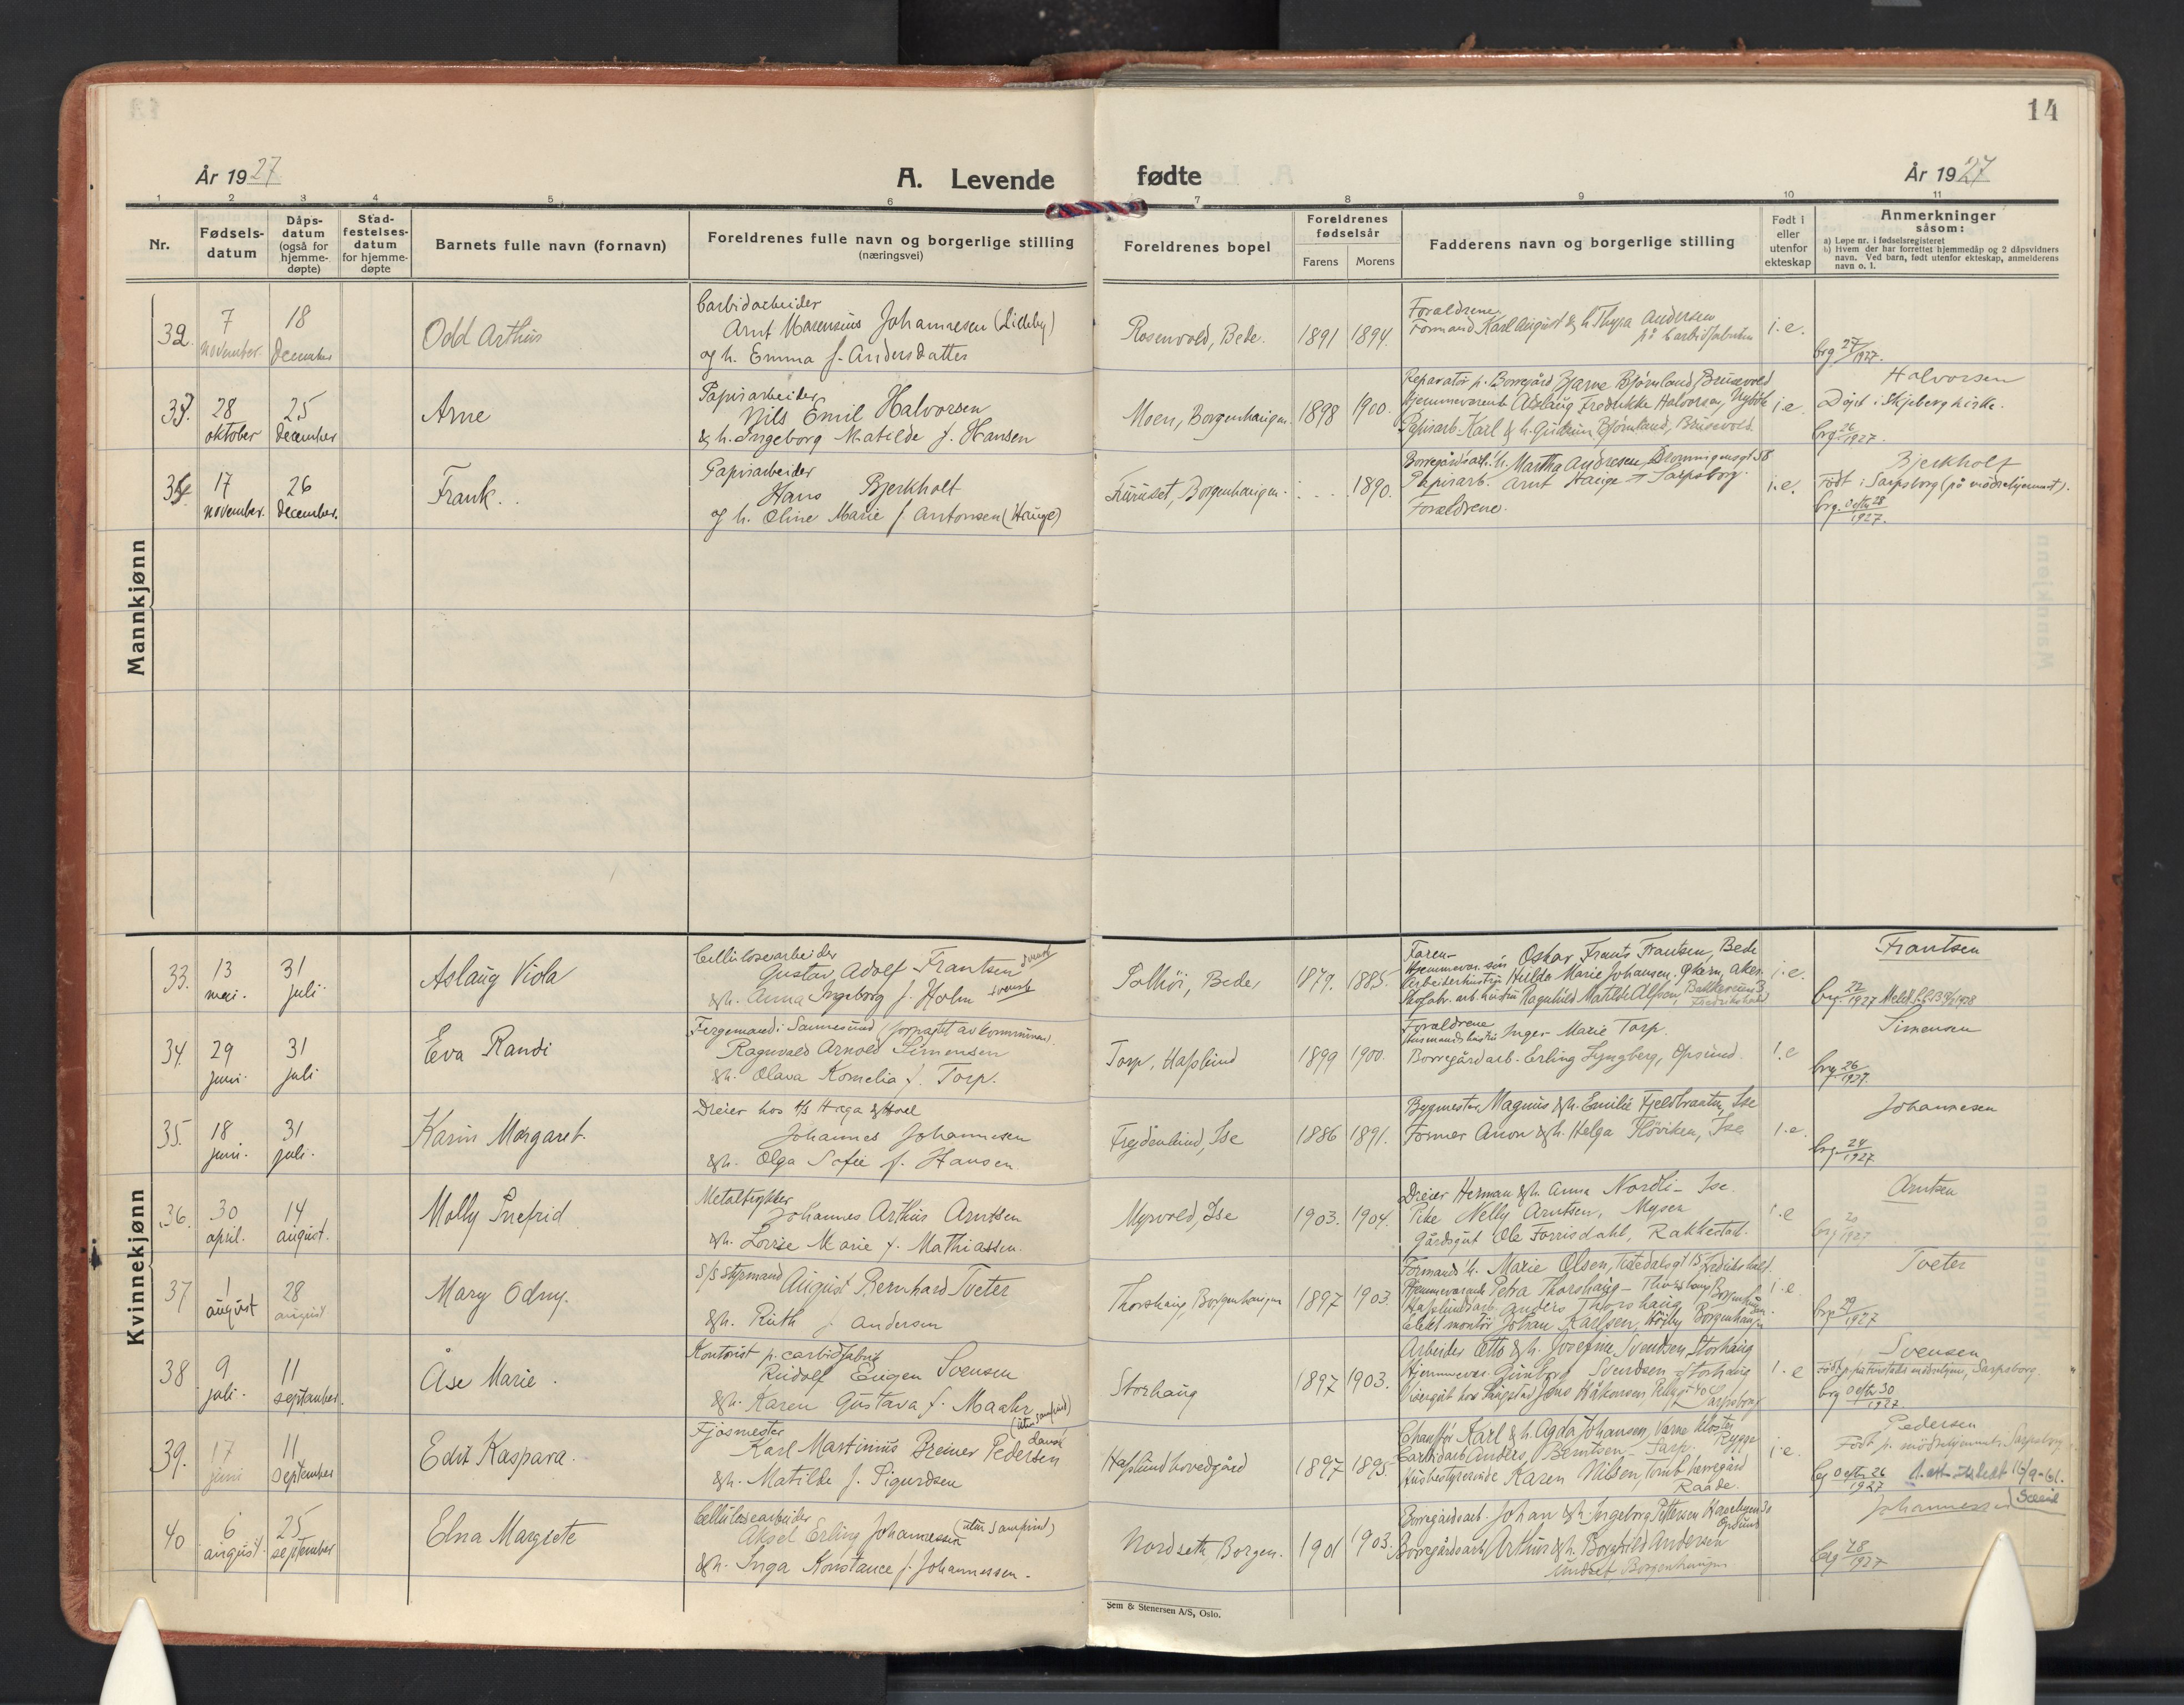 14
År 1927
A. Levende fødte
År 1927
1 2 3 4 5 6 7 8 9 10 11
Nr.
Fødsels-
datum
Dåps-
datum
(også for
hjemme-
døpte)
Stad-
festelses-
datum
for hjemme-
døpte
Barnets fulle navn (fornavn)
Foreldrenes fulle navn og borgerlige stilling
(næringsvei)
Foreldrenes bopel
Foreldrenes
fødselsår
Farens Morens
Fadderens navn og borgerlige stilling
Født i
eller
utenfor
ekteskap
Anmerkninger
såsom:
a) Løpe nr. i fødselsregisteret
b) Hvem der har forrettet hjemmedåp og 2 dåpsvidners
navn. Ved barn, født utenfor ekteskap, anmelderens
navn o. l.
Mannkjønn
32. 7 november. 18 December
Odd Arthur
Carbidarbeider
Arnt Marensius Johannesen (Lilleby)
og h. Emma f. Andersdatter
Rosenvold, Bede. 1891 1894.
Foreldrene
Formand Karl August & h. Thyra Andersen
på Carbidfabriken
i.e.
brg 27/1927.
33. 28 oktober 25 december
Arne
Papirarbeider
Nils Emil Halvorsen
& h. Ingeborg Matilde f. Hansen
Moen, Borgenhaugen. 1898 1900.
Reparatør p. Borregård Bjarne Bjørnland, Brusevold
Hjemmeværende Aslaug Fredrikke Halvorsen, Nybøle
Papirarb. Karl & h. Gudrun Bjørnland, Brusevold.
i.e.
Halvorsen
Døpt i Skjeberg kirke.
brg. 26/1927.
34. 17 november. 26 december.
Frank.
Papirarbeider
Hans Bjerkholt
og h. Oline Marie f. Antonsen (Hauge)
Furuset, Borgenhaugen. 1890.
Borregårdsarb. h. Martha Andresen, Dronningensgt 58
Papirarb. Arnt Hauge Sarpsborg.
Foreldrene.
i.e.
Bjerkholt
Født i Sarpsborg (på mødrehjemmet).
brg. 28/1927.
Kvinnekjønn
33. 13 mai. 31 juli
Aslaug Viola
Cellulosearbeider
Gustav Adolf Frantsen svensk
& h. Anna Ingeborg f. Holm svensk
Solhøi, Bede 1879. 1885.
Faren
Hjemmevær. søn Oskar Frants Frantsen, Bede
Arbeiderhustru Hulda Marie Johansen, Aker.
arb. hustru Ragnhild Matilde Alfsen,
Fredrikshald
i.e.
Frantsen
brg. 22/1927
34. 29 juni. 31 juli
Eva Randi
Fergemand i Sannesund (forpagtet av kommunen).
Ragnvald Arnold Simensen
& h. Olava Kornelia f. Torp.
Torp, Hafslund 1899 1900.
Foreldrene
Husmandshustru Inger Marie Torp.
Borregårdarb. Erling Lyngberg, Opsund.
i.e
Simensen
brg 26/1927.
35. 18 juni. 31 juli.
Karin Margaret.
Dreier hos A/S Haga & Hoel
Johannes Johannesen
& h. Olga Sofie f. Hansen.
Frydenlund, Ise 1886 1891.
Bygmester Magnus & h. Emilie Fjeldbraaten, Ise
Former Anon & h. Helga Høviken, Ise
i.e.
Johannesen
brg. 24/1927
36. 30 april. 14 august.
Molly Snefrid
Metaltrykker
Johannes Arthur Arntsen
& h. Lovise Marie f. Mathiassen.
Myrvold, Ise 1903. 1904.
Dreier Herman & h. Anna Nordli - Ise.
Pike Nelly Arntsen, Mysen
Gårdsgut Ole Forrisdahl, Rakkestad.
i.e
Arntsen
brg 20/1927
37 1 august 28 august
Mary Odny.
S/S Styrmand August Bernhard Tveter
& h. Ruth f. Andersen
Thorshaug, Borgenhaugen 1897 1903.
Formands h. Marie Olsen, Tistedalsgt 15 Fredrikshald.
Hjemmeværende Petra Thorshaug - Borgenhaugen
Hafslundsarb. Anders Thorshaug
Elekt montør Johan Karlsen, Høiby Borgenhaugen
i.e.
Tveter
brg 29/1927
38 9 juli. 11 september.
Åse Marie.
Kontorist p. carbidfabrik
Rudolf Eugen Svensen
& h. Karen Gustava f. Maahr
(uten samfund)
Storhaug 1897 1903.
Arbeider Otto & h. Josefine Svendsen, Storhaug
Hjemmevær. Gunborg Svendsen Storhaug
Visergut hos Haugstad Jens Håkonsen, Sarpsborg
i.e
Svensen
brg 30/1927
39. 17 juni 11 september
Edit Kaspara.
Fjøsmester
Karl Martinius Breiner Pedersen dansk
& h. Matilde f. Sigurdsen
Hafslund hovedgård 1897 1895.
Chauffør Karl & h. Agda Johansen, Varne kloster Rygge
Carbidarb. Anders Berntsen - Sarp.
Husbestyrerinde Karen Nilsen, Tomb herregård
Raade.
i.e.
Pedersen
Født p. mødrehjemmet, Sarpsborg
brg 26/1927
40 6 august. 25 september
Elna Margrete
Cellulosearbeider
Aksel Erling Johannessen (uten samfund)
& h. Inga Konstance f. Johannessen.
Nordseth Borgen. 1901 1903.
Borregårdsarb. Johan & h. Ingeborg Pettersen
Opsund
Borregårdsarb. Arthur & h. Borghild Andersen
Borgenhaugen
Johannessen
brg 28/1927
Sem & Stenersen A/S, Oslo.